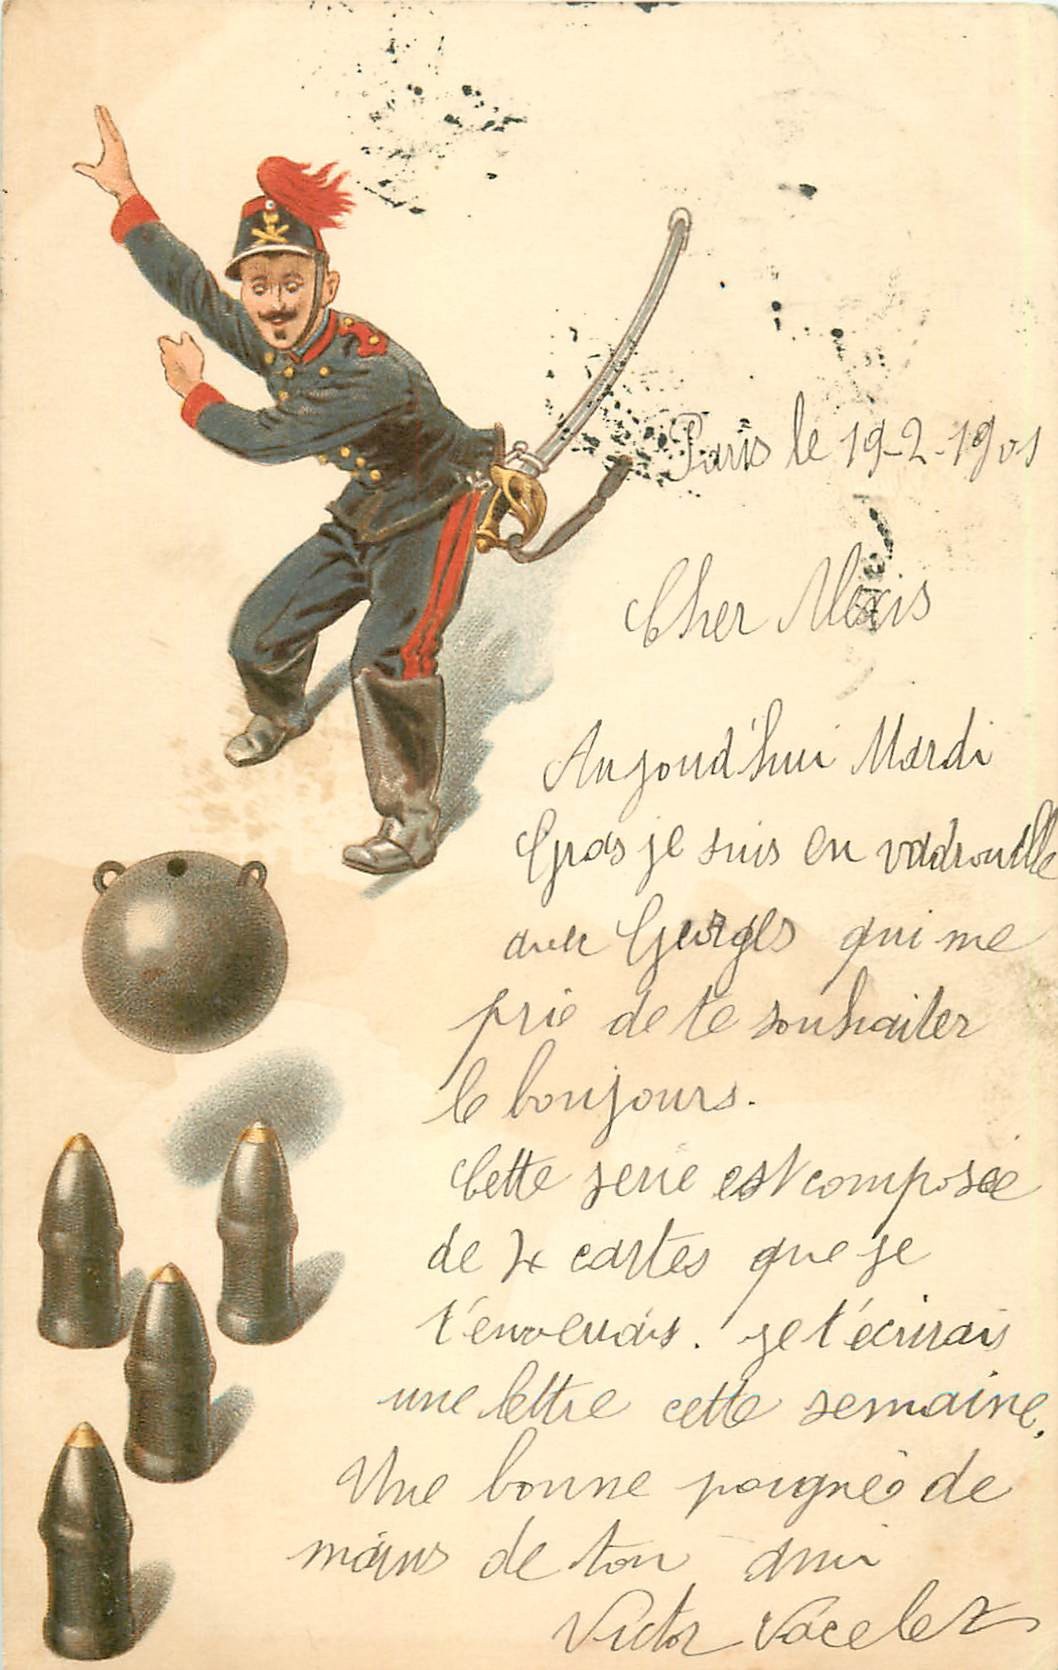 Paris le 19-2-1901
Cher Alexis
Aujourd'hui Mardi
Gras je suis en vadrouille
avec Georges qui me
prie de te souhaiter
le bonjours.
Cette serie est composée
de 4 cartes que je
t'enverrais. je t'écrirais
une lettre cette semaine,
Une bonne poignée de
mains de ton ami
Victor Vacelet